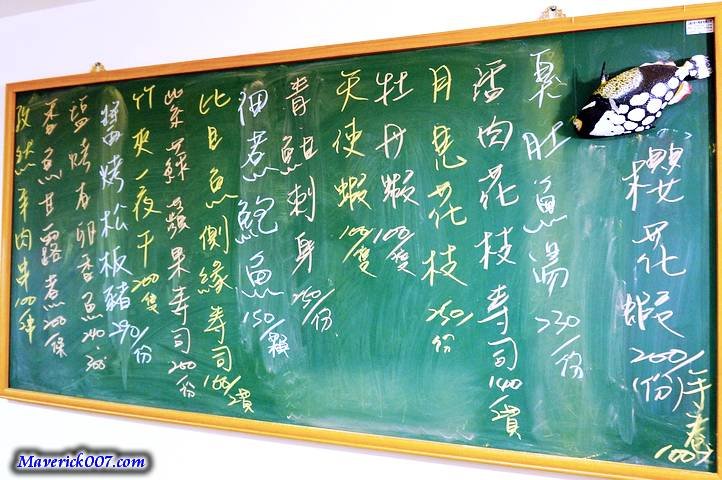 櫻花蝦200/份
魚肚魚湯230/份
海肉花枝壽司140/貫
月見花枝250/份
牡丹蝦100/隻
天使蝦100/隻
青魽刺身250/份
細煮鮑魚150/顆
比目魚側緣壽司160/貫
紫蘇蘋果壽司200/份
竹夾一夜干200/隻
烤松板豬290/份
鹽烤春卵香魚240-300
香魚甘露煮200/條
孜然羊肉串100/串
Maverick007.com